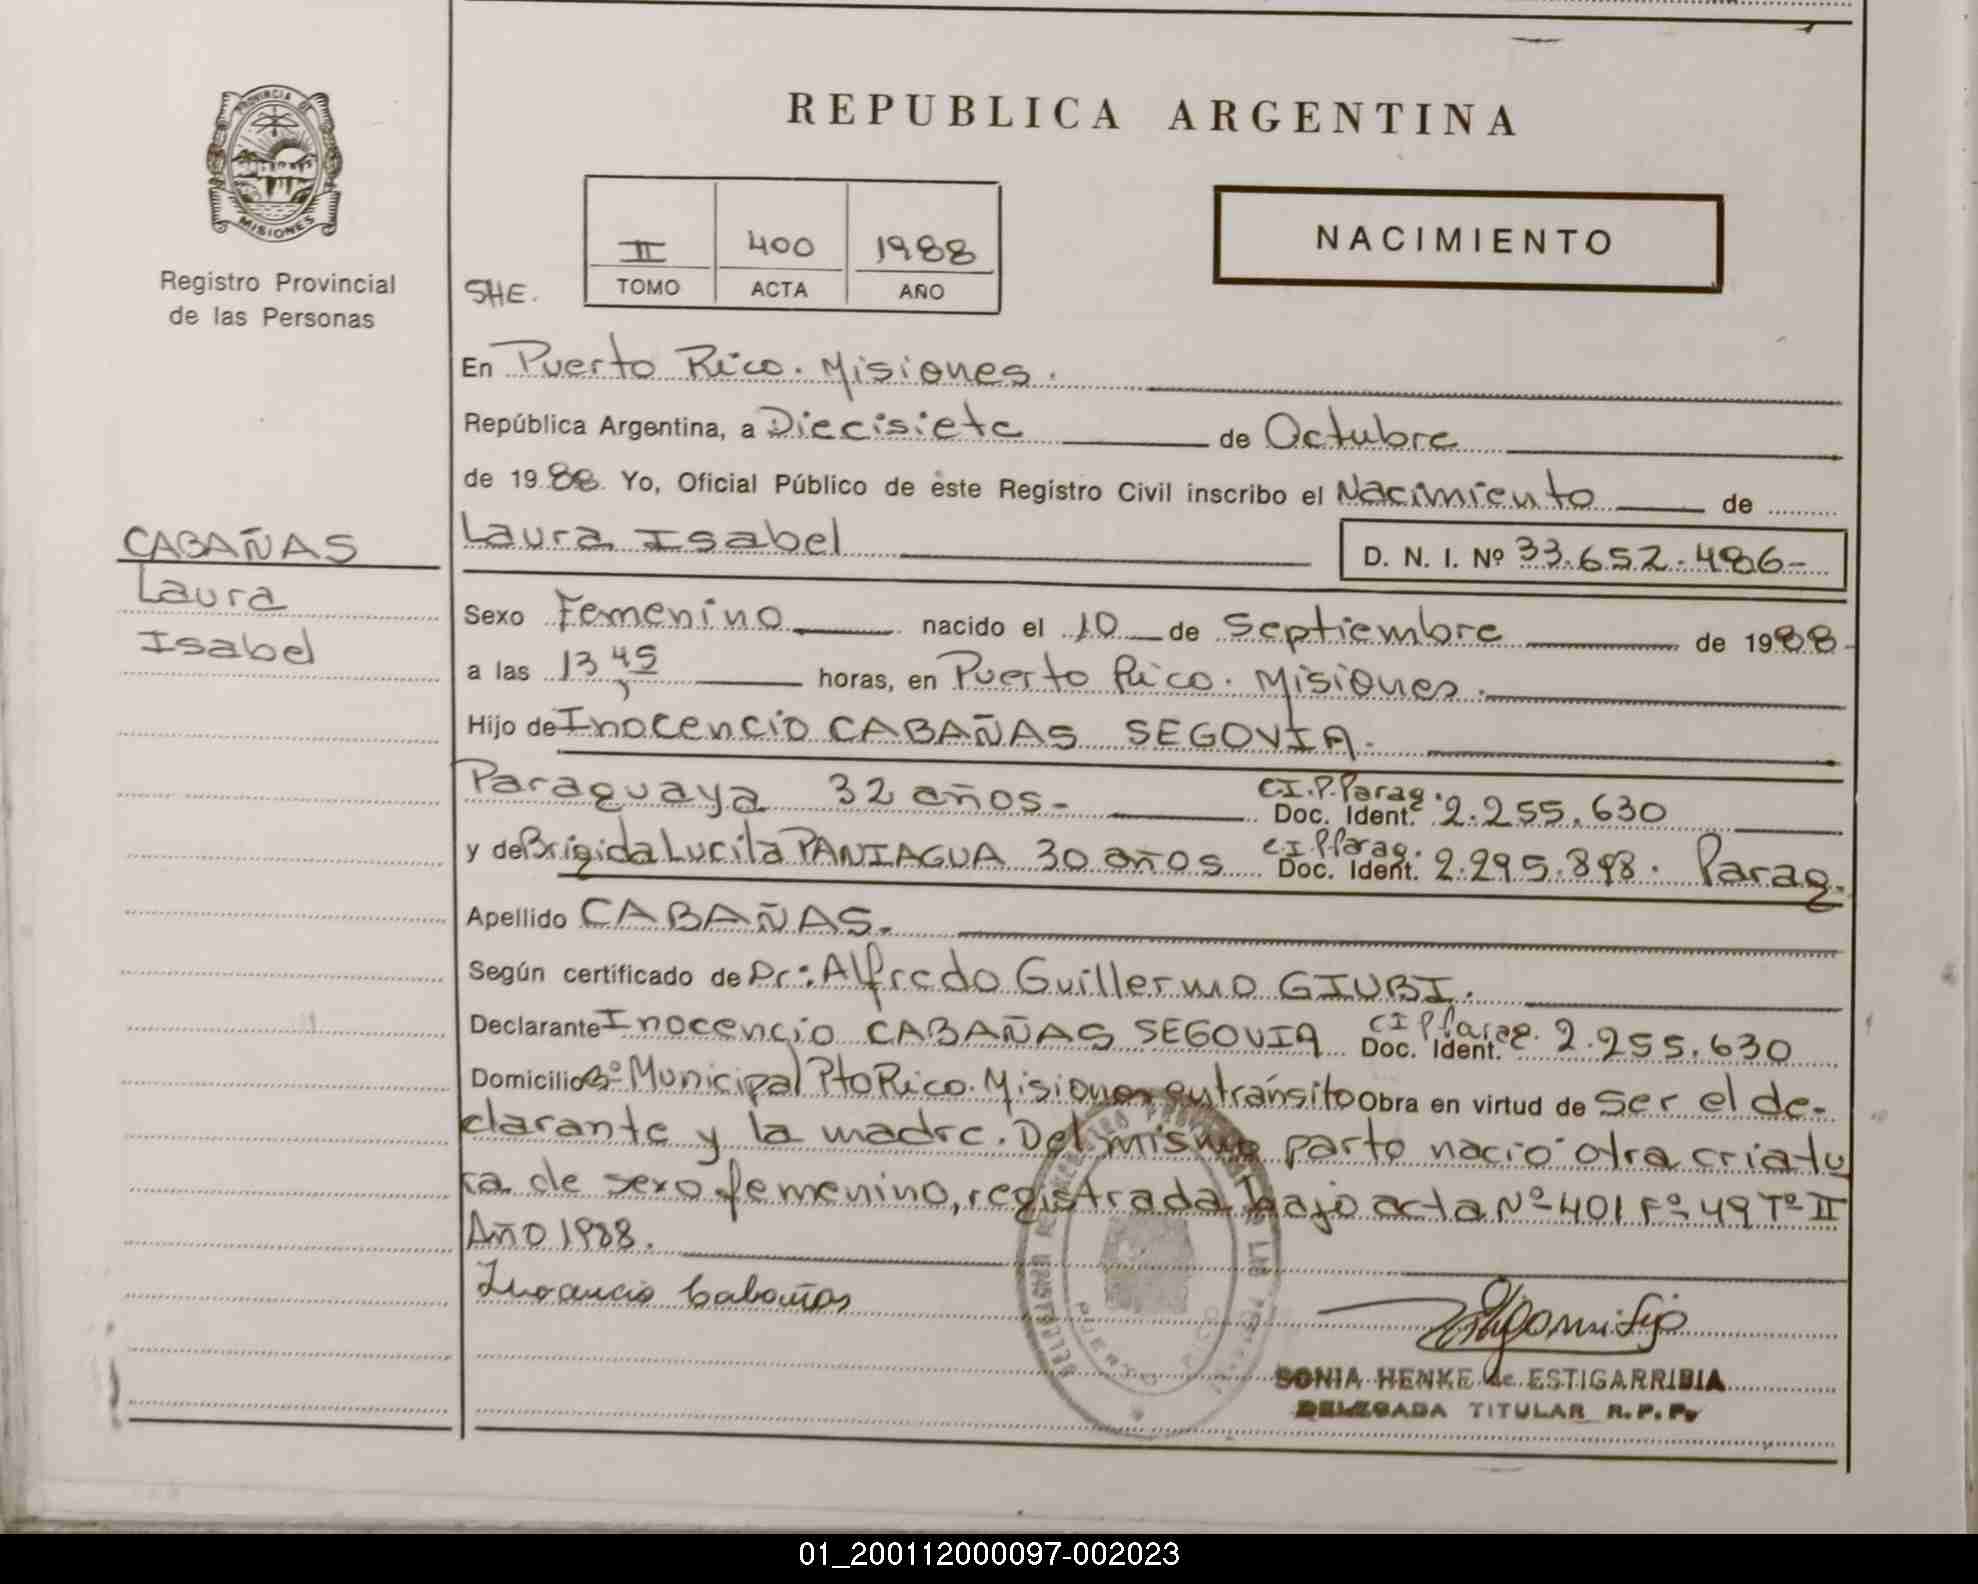 REPUBLICA ARGENTINA
PROVINCIA DE
MISIONES
Registro Provincial
de las Personas
II 400 1988
TOMO ACTA AÑO
NACIMIENTO
SHE.
En Puerto Rico. Misiones.
República Argentina, a Diecisiete de Octubre
de 1988 Yo, Oficial Público de este Registro Civil inscribo el Nacimiento de
CABAÑAS
Laura
Isabel
Laura Isabel
D. N. I. Nº 33.652.486-
Sexo Femenino nacido el 10 de Septiembre de 1988-
a las 13,45 horas, en Puerto Rico. Misiones.
Hijo de Inocencio CABAÑAS SEGOVIA.
Paraguaya 32 años- C.I.P.Parag. Doc. Ident. 2.255.630
y de Brigida Lucila PANIAGUA 30 años C.I.P.Parag. Doc. Ident. 2.295.898. Parag.
Apellido CABAÑAS.
Según certificado de Dr: Alfredo Guillermo GIUBI.
Declarante Inocencio CABAÑAS SEGOVIA CIPParag. Doc. Ident. 2.255.630
Domicilio Bº Municipal Pto Rico. Misiones en tránsito Obra en virtud de ser el de-
clarante y la madre. Del mismo parto nació otra criatu
ra de sexo femenino, registrada bajo acta Nº 401 Fº 49 Tº II
Año 1988.
Inocencio Cabañas
SONIA HENKE de ESTIGARRIBIA
DELEGADA TITULAR R.P.P.
01_200112000097-002023